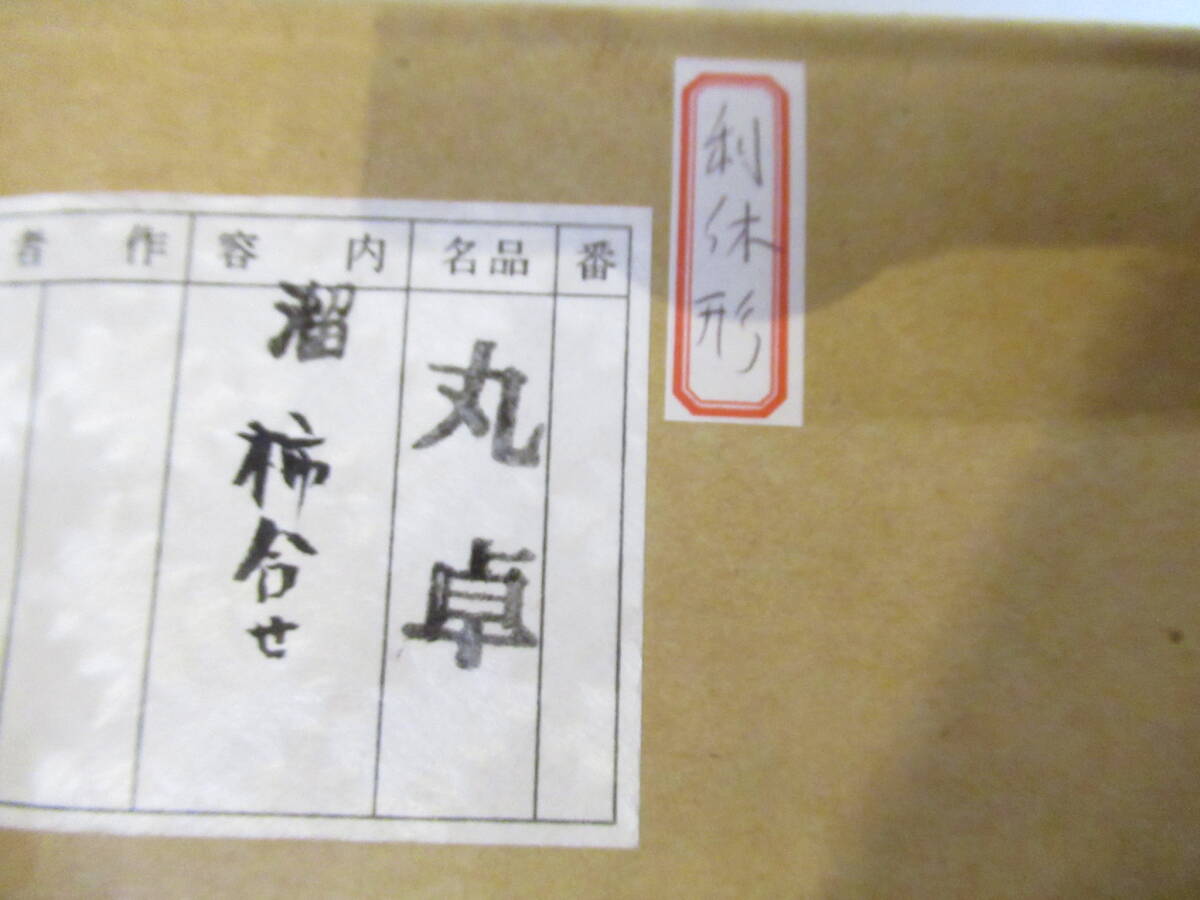 利休形
番
品名
丸卓
内容
溜
柿合せ
作者